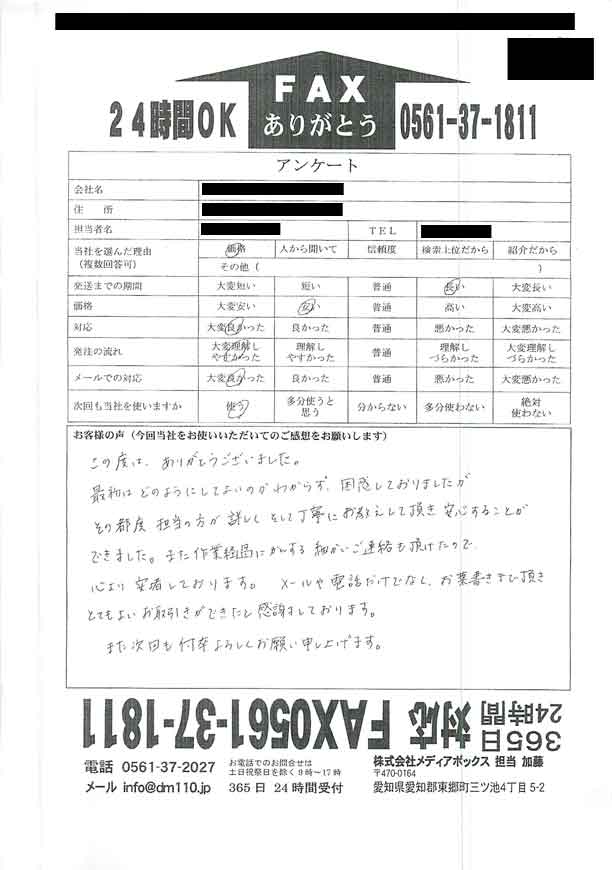 FAX
ありがとう
24時間OK
0561-37-1811
アンケート
会社名
住 所
担当者名 TEL
当社を選んだ理由（複数回答可） 価格 人から聞いて 信頼度 検索上位だから 紹介だから
その他（ ）
発送までの期間 大変短い 短い 普通 長い 大変長い
価格 大変安い 安い 普通 高い 大変高い
対応 大変良かった 良かった 普通 悪かった 大変悪かった
発注の流れ 大変理解しやすかった 理解しやすかった 普通 理解しづらかった 大変理解しづらかった
メールでの対応 大変良かった 良かった 普通 悪かった 大変悪かった
次回も当社を使いますか 使う 多分使うと思う 分からない 多分使わない 絶対使わない
お客様の声（今回当社をお使いいただいてのご感想をお願いします）
この度は、ありがとうございました。
最初はどのようにしてよいのかわからず、困惑しておりましたが
その都度 担当の方が 詳しく そして丁寧に お教えして頂き 安心することが
できました。また作業経過にかんする 細かいご連絡も頂けたので、
心より 安著しております。 メールや電話だけでなく、お葉書きまで頂き
とてもよい お取引きができたと感謝しております。
また次回も何卒よろしくお願い申し上げます。
365日24時間対応 FAX0561-37-1811
電話 0561-37-2027 お電話でのお問合せは土日祝祭日を除く9時～17時
メール info@dm110.jp 365日 24時間受付
株式会社メディアボックス 担当 加藤
〒470-0164
愛知県愛知郡東郷町三ツ池4丁目5-2